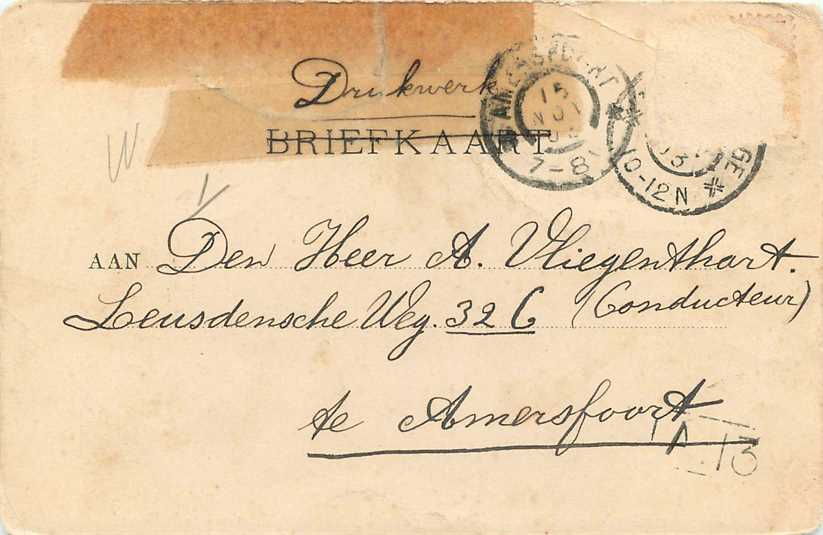 Drukwerk
BRIEFKAART
AMERSFOORT
15
NOV
7-8
GE
10-12N
AAN Den Heer A. Vliegenthart.
Leusdensche Weg. 32 C (Conducteur)
te Amersfoort
13